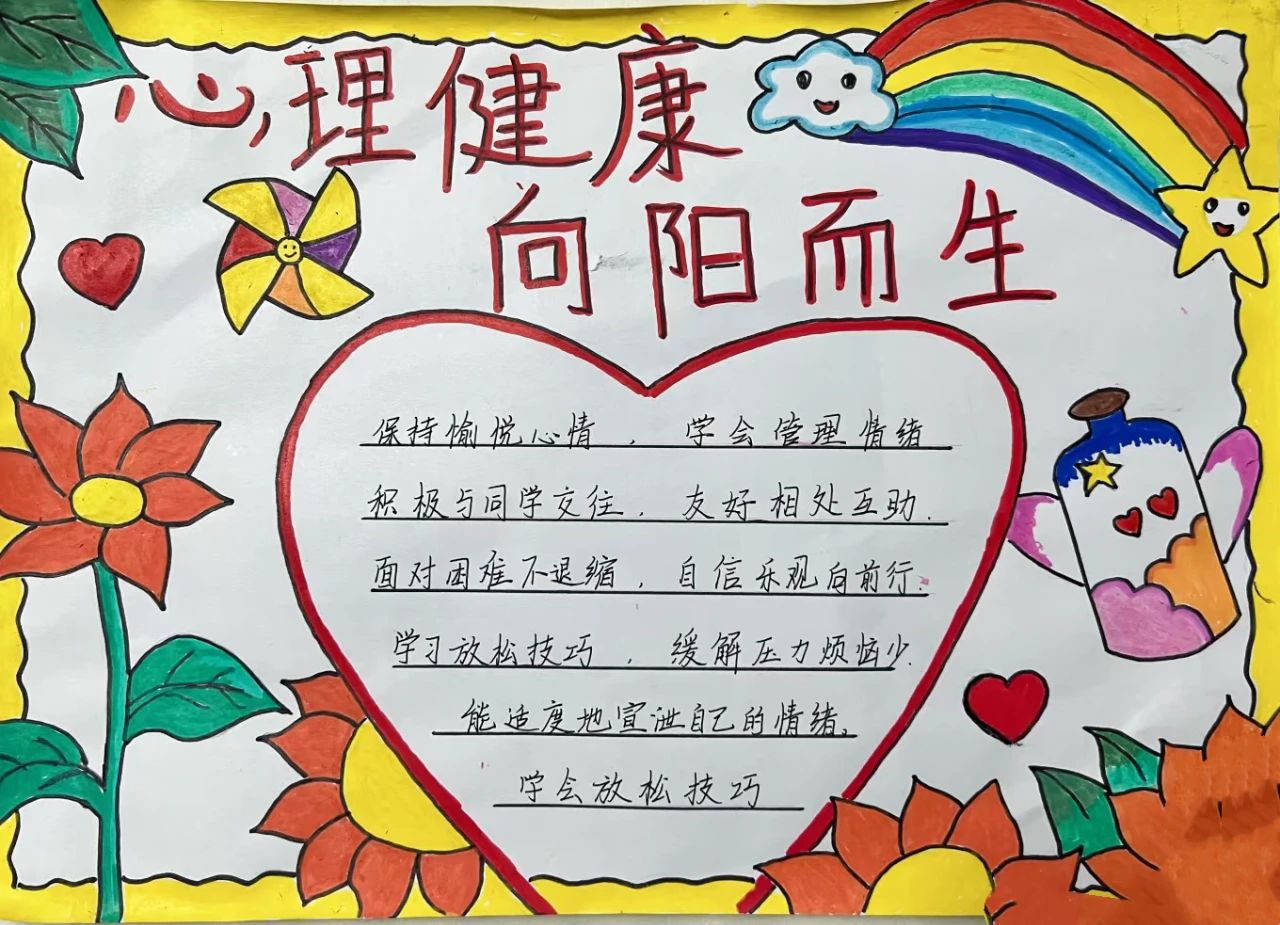 心理健康
向阳而生
保持愉悦心情，学会管理情绪
积极与同学交往，友好相处互助.
面对困难不退缩，自信乐观向前行.
学习放松技巧，缓解压力烦恼少.
能适度地宣泄自己的情绪。
学会放松技巧